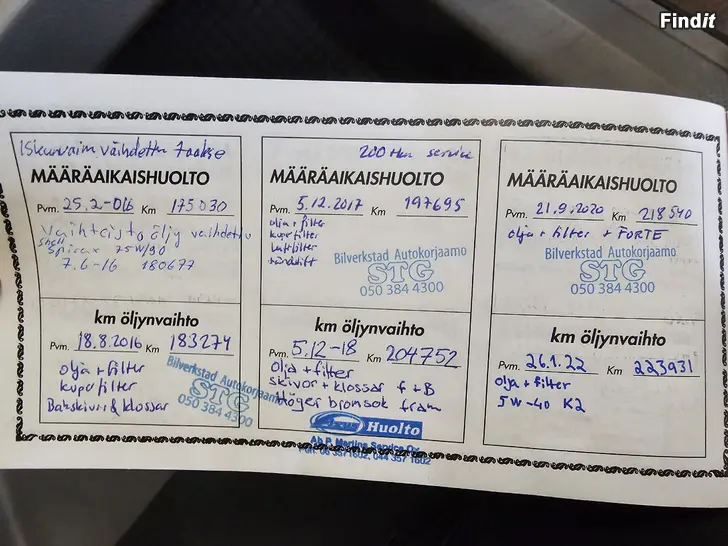 Findit
Iskunvaim vaihdettu taakse
MÄÄRÄAIKAISHUOLTO
Pvm. 25.2-016 Km 175030
Vaihteisto öljy vaihdettu
Shell
Spirax 75W/90
7.6-16 180677
km öljynvaihto
Pvm. 18.8.2016 Km 183274
olja + filter
kupefilter
Bakskivor & klossar
Bilverkstad Autokorjaamo
STG
050 384 4300
200 tkm service
MÄÄRÄAIKAISHUOLTO
Pvm. 5.12.2017 Km 197695
olja + filter
kupefilter
luftfilter
tändstift
Bilverkstad Autokorjaamo
STG
050 384 4300
km öljynvaihto
Pvm. 5.12-18 Km 204752
Olja + filter
skivor + klossar f + B
Höger bromsok fram
Huolto
Ab P. Martins Service Oy
Puh. 06 3571602, 044 357 1602
MÄÄRÄAIKAISHUOLTO
Pvm. 21.9.2020 Km 218540
olja + filter + FORTE
Bilverkstad Autokorjaamo
STG
050 384 4300
km öljynvaihto
Pvm. 26.1.22 Km 223931
olja + filter
5W-40 K2